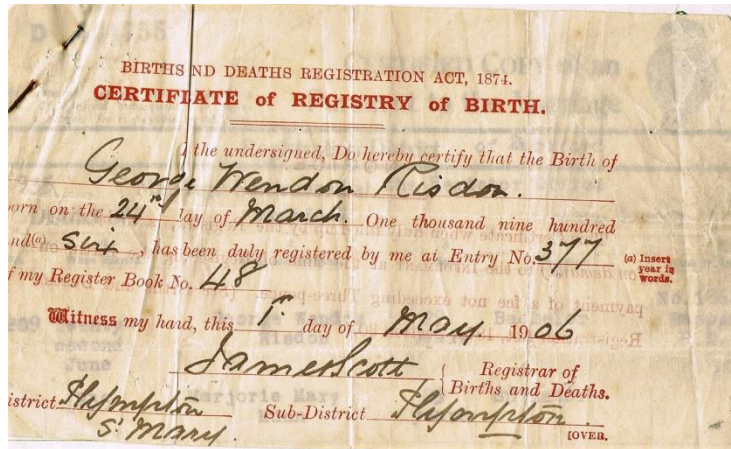 BIRTHS ND DEATHS REGISTRATION ACT, 1874.
CERTIFIATE of REGISTRY of BIRTH.
I the undersigned, Do hereby certify that the Birth of
George Wendon Risdon.
orn on the 24th day of March. One thousand nine hundred
nd(a) six, has been duly registered by me at Entry No. 377
(a) Insert year in words.
f my Register Book No. 48
Witness my hand, this 1st day of May 1906
James Scott
Registrar of Births and Deaths.
istrict Plympton Sub-District Plympton.
St Mary.
[OVER.